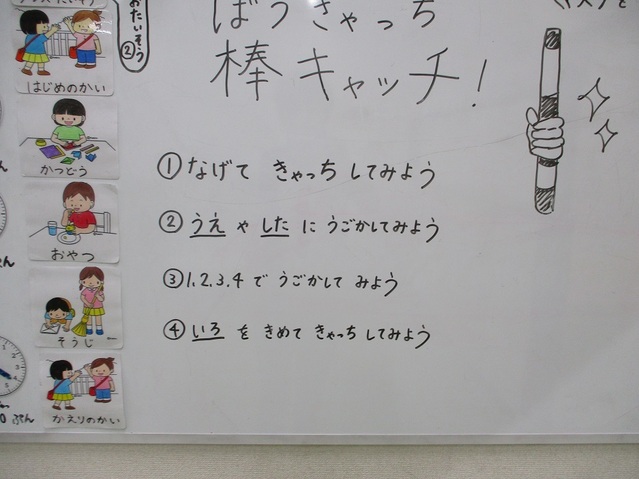 ぼうきゃっち
棒キャッチ!
①なげて きゃっち してみよう
②うえ や した に うごかしてみよう
③1.2.3.4 で うごかして みよう
④いろ を きめて きゃっち してみよう
おたいそう②
はじめのかい
かつどう
おやつ
そうじ
かえりのかい
ぷん